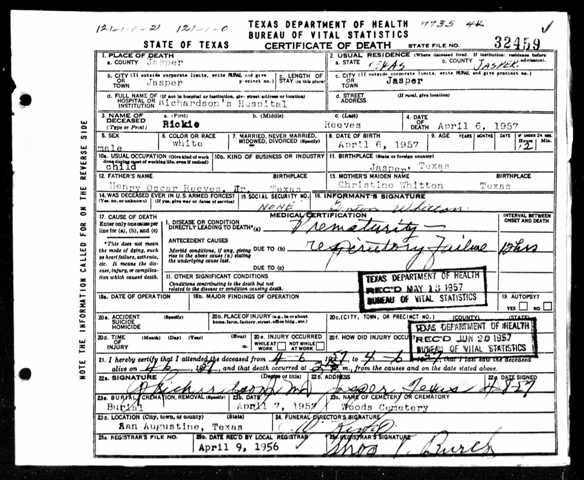 TEXAS DEPARTMENT OF HEALTH
BUREAU OF VITAL STATISTICS
STATE OF TEXAS CERTIFICATE OF DEATH STATE FILE NO. 32459
1. PLACE OF DEATH
a. COUNTY Jasper
2. USUAL RESIDENCE (Where deceased lived. If institution: residence before admission)
a. STATE TEXAS b. COUNTY JASPER
b. CITY (If outside corporate limits, write RURAL and give precinct no.) OR TOWN Jasper
c. LENGTH OF STAY
c. CITY (If outside corporate limits, write RURAL and give precinct no.) OR TOWN Jasper
d. FULL NAME OF (If not in hospital or institution, give street address or location) HOSPITAL OR INSTITUTION Richardson's Huspital
d. STREET ADDRESS (If rural, give location)
3. NAME OF DECEASED (Type or Print) a. (First) Rickie b. (Middle) c. (Last) Reeves
4. DATE OF DEATH April 6, 1957
5. SEX male
6. COLOR OR RACE white
7. MARRIED, NEVER MARRIED, WIDOWED, DIVORCED (Specify)
8. DATE OF BIRTH April 6, 1957
9. AGE YEARS MONTHS DAYS Hours 12 Min.
10a. USUAL OCCUPATION (Give kind of work done during most of working life, even if retired) child
10b. KIND OF BUSINESS OR INDUSTRY
11. BIRTHPLACE (State or foreign country) Jasper, Texas
12. FATHER'S NAME Henry Oscar Reeves, Jr. Texas
13. MOTHER'S MAIDEN NAME Christine Whitton Texas
14. WAS DECEASED EVER IN U.S. ARMED FORCES? (Yes, no, or unknown)
15. SOCIAL SECURITY NO. NONE
16. INFORMANT'S SIGNATURE Whitton
17. CAUSE OF DEATH
Enter only one cause per line for (a), (b), and (c)
MEDICAL CERTIFICATION
INTERVAL BETWEEN ONSET AND DEATH
I. DISEASE OR CONDITION DIRECTLY LEADING TO DEATH* (a) Prematurity
*This does not mean the mode of dying, such as heart failure, asthenia, etc. It means the disease, injury, or complication which caused death.
ANTECEDENT CAUSES
Morbid conditions, if any, giving rise to the above cause (a) stating the underlying cause last.
DUE TO (b) respiratory failure 12 hrs
DUE TO (c)
II. OTHER SIGNIFICANT CONDITIONS
Conditions contributing to the death but not related to the disease or condition causing death.
TEXAS DEPARTMENT OF HEALTH
REC'D MAY 13 1957
BUREAU OF VITAL STATISTICS
18a. DATE OF OPERATION
18b. MAJOR FINDINGS OF OPERATION
19. AUTOPSY YES NO
20a. ACCIDENT SUICIDE HOMICIDE
20b. PLACE OF INJURY (e.g. in or about home, farm, factory, street, office bldg., etc.)
20c. (CITY, TOWN, OR PRECINCT NO.) (COUNTY) (STATE)
TEXAS DEPARTMENT OF HEALTH
REC'D JUN 20 1957
BUREAU OF VITAL STATISTICS
20d. TIME OF INJURY (Month) (Day) (Year) (Hour)
20e. INJURY OCCURRED WHILE AT WORK NOT WHILE AT WORK
20f. HOW DID INJURY OCCUR?
21. I hereby certify that I attended the deceased from 4-6 1957 to 4-6 that I last saw the deceased
alive on 4-6 and that death occurred at m., from the causes and on the date stated above.
22a. SIGNATURE Richardson (Degree or title) MD
22b. ADDRESS Jasper, Texas
22c. DATE SIGNED
23a. BURIAL, CREMATION, REMOVAL (Specify) Burial
23b. DATE April 7, 1957
23c. NAME OF CEMETERY OR CREMATORY Woods Cemetery
23d. LOCATION (City, town, or county) (State) San Augustine, Texas
24. FUNERAL DIRECTOR'S SIGNATURE
25a. REGISTRAR'S FILE NO.
25b. DATE REC'D BY LOCAL REGISTRAR April 9, 1956
25c. REGISTRAR'S SIGNATURE
NOTE THE INFORMATION CALLED FOR ON THE REVERSE SIDE